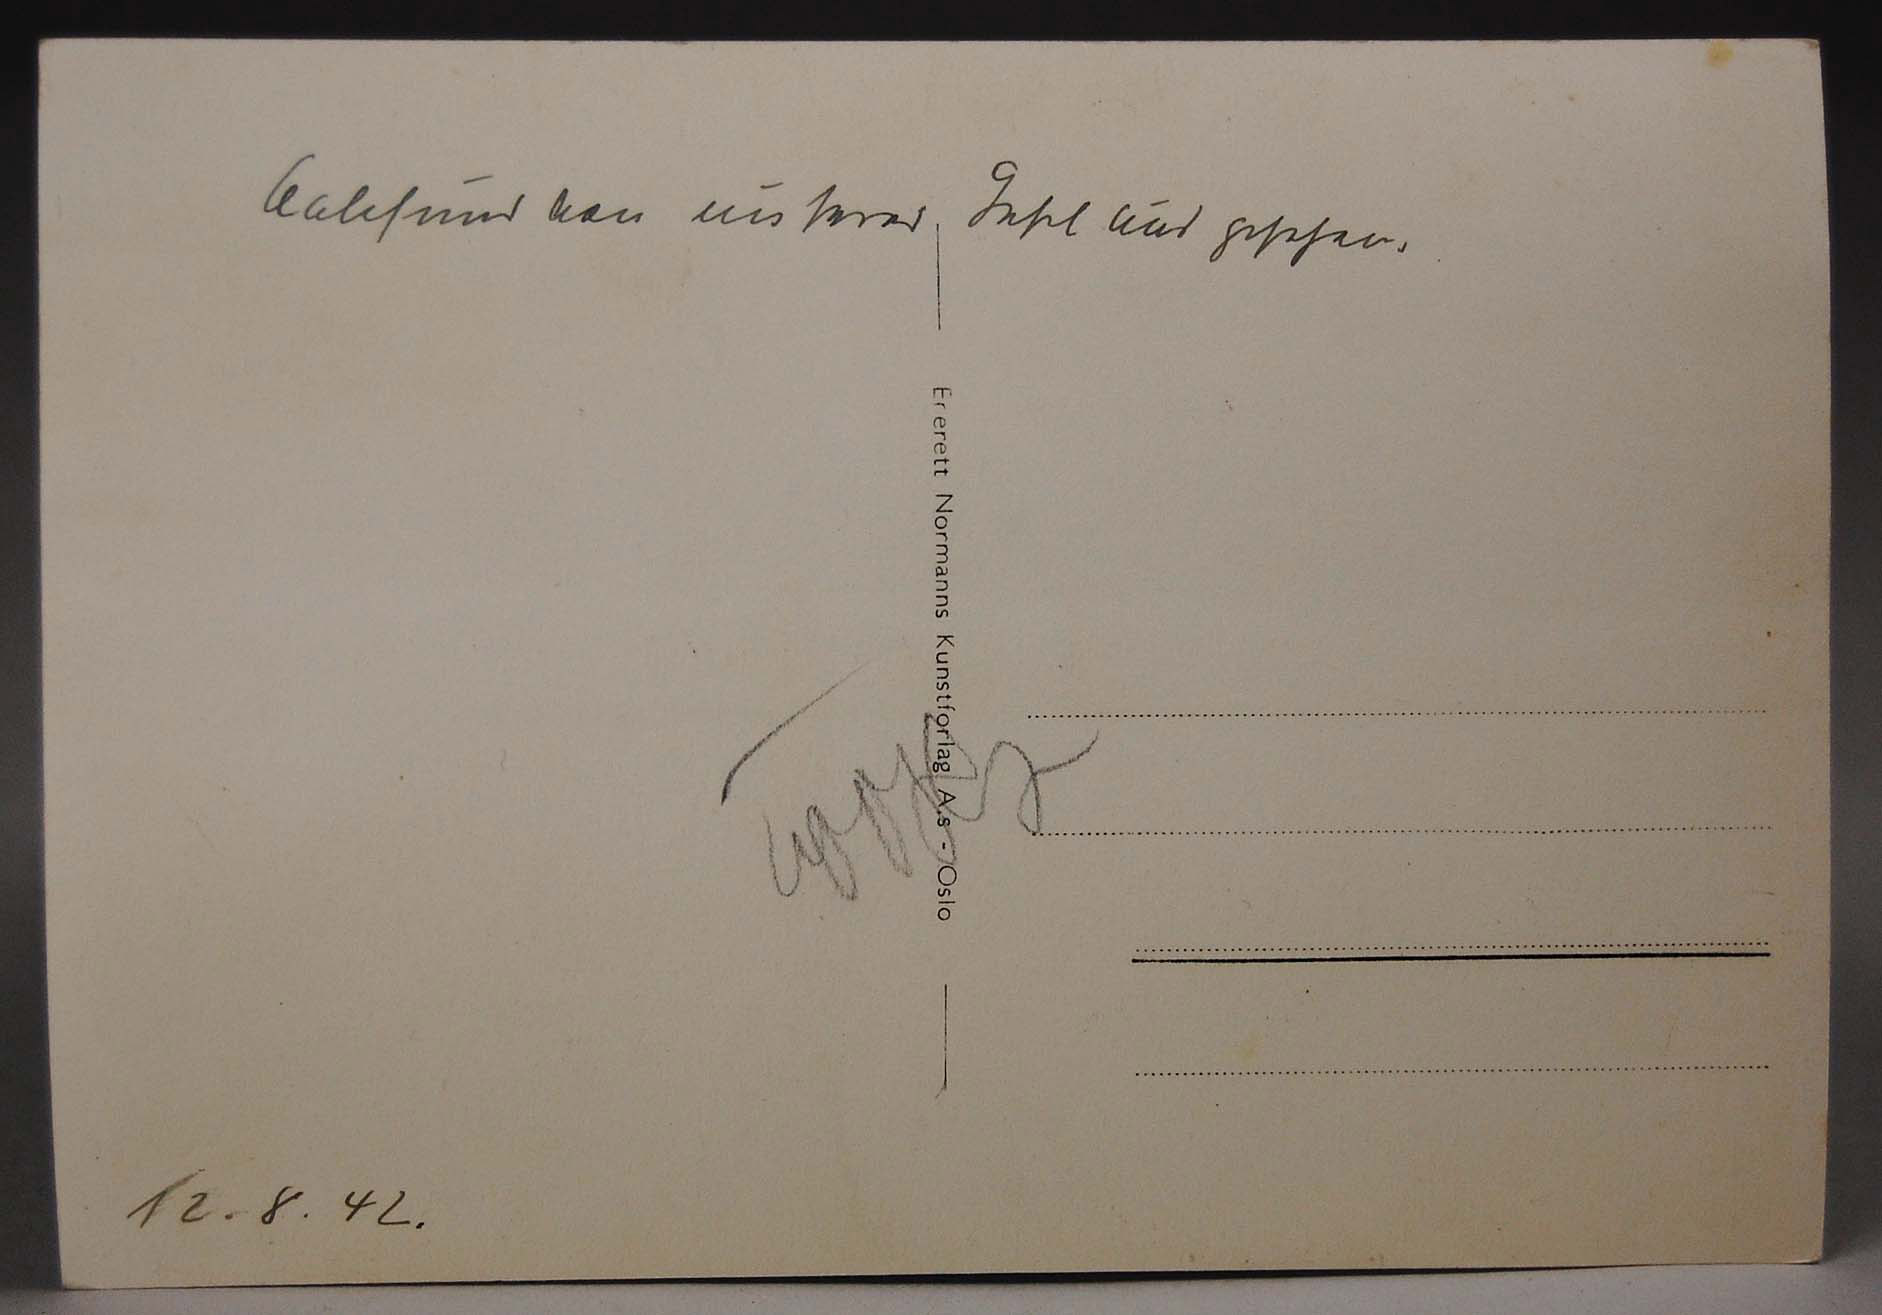 Aalesund von unserer Insel aus gesehen.
Enerett Normanns Kunstforlag A.s - Oslo
12.8.42.